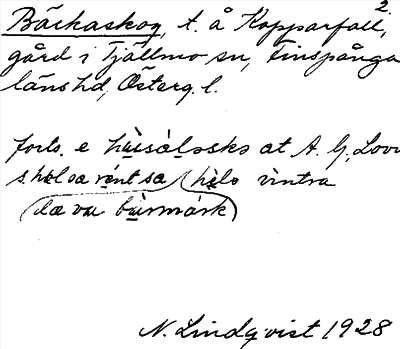 2.
Bäckaskog, t. å Kopparfall,
gård i Tjällmo sn, Finspånga
länshd, Österg. l.
forts. e hùsáləskə at A. G. Lovi
s. həl sa rént sa hèlə vìntra
da va bùrmárk
N. Lindqvist 1928